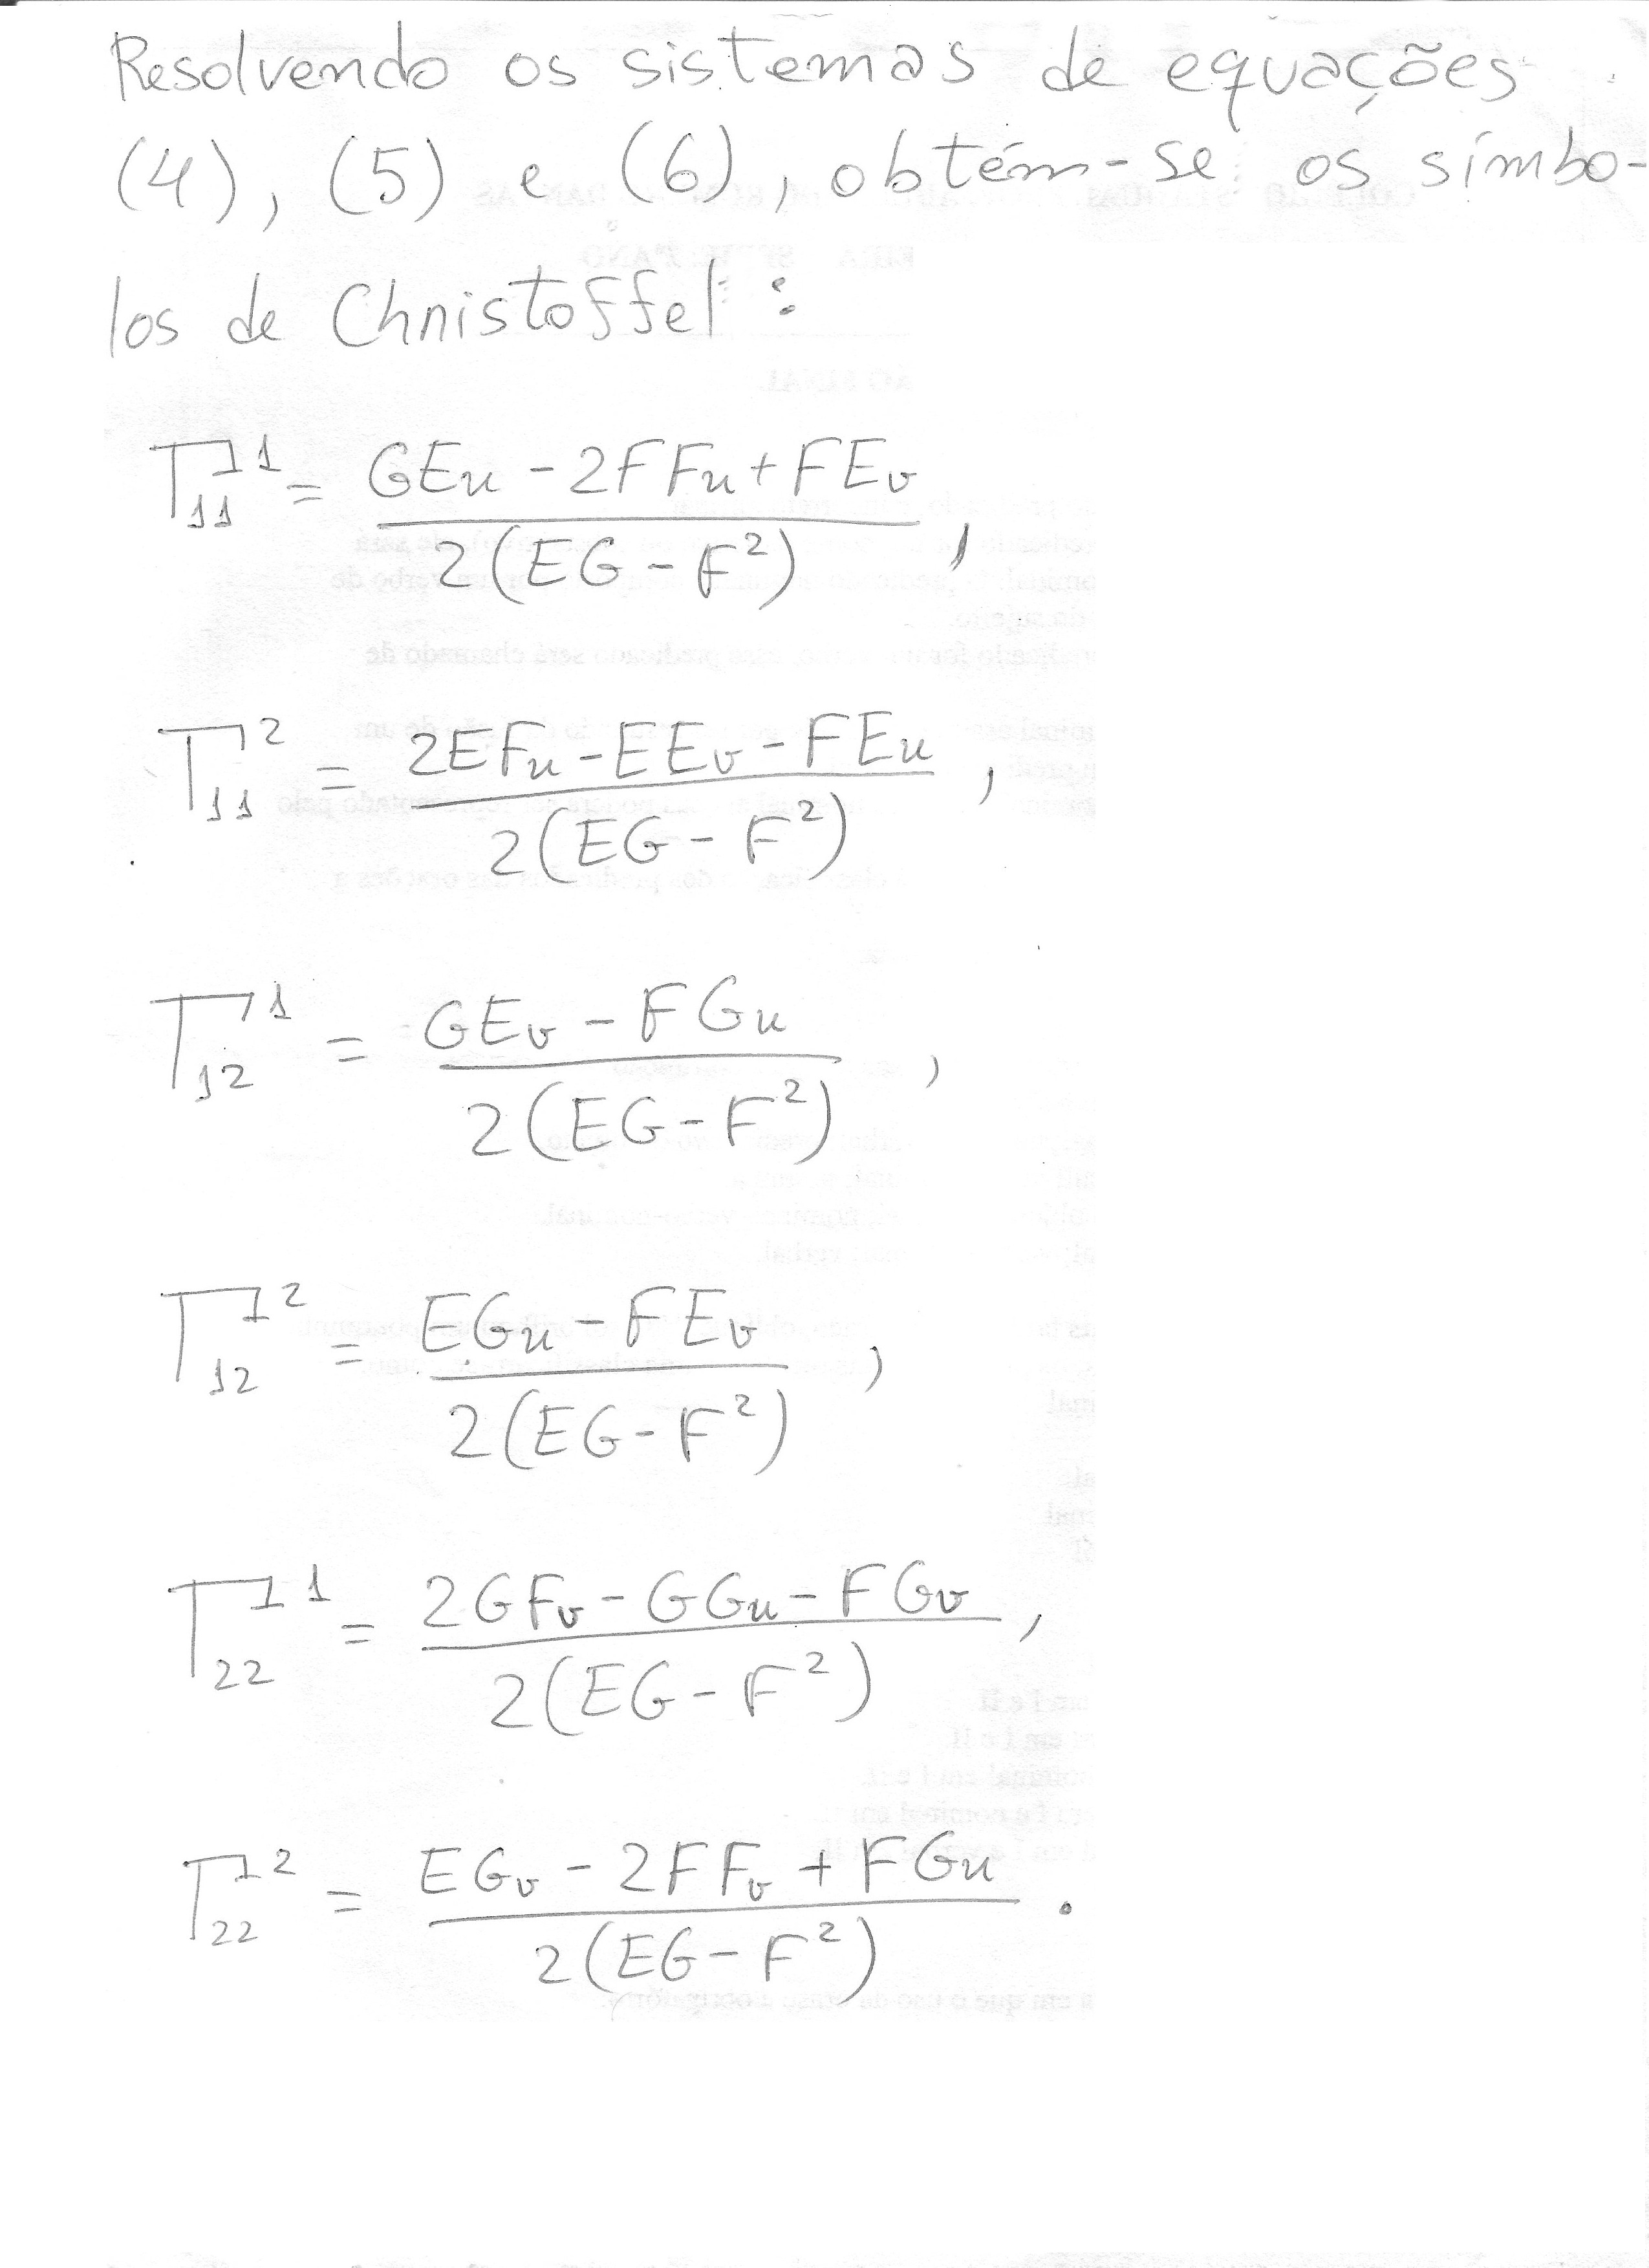 Resolvendo os sistemas de equações
(4), (5) e (6), obtém-se os símbo-
los de Christoffel:
Γ₁₁¹ = (GEu - 2FFu + FEv) / 2(EG - F²) ,
Γ₁₁² = (2EFu - EEv - FEu) / 2(EG - F²) ,
Γ₁₂¹ = (GEv - FGu) / 2(EG - F²) ,
Γ₁₂² = (EGu - FEv) / 2(EG - F²) ,
Γ₂₂¹ = (2GFv - GGu - FGv) / 2(EG - F²) ,
Γ₂₂² = (EGv - 2FFv + FGu) / 2(EG - F²) .